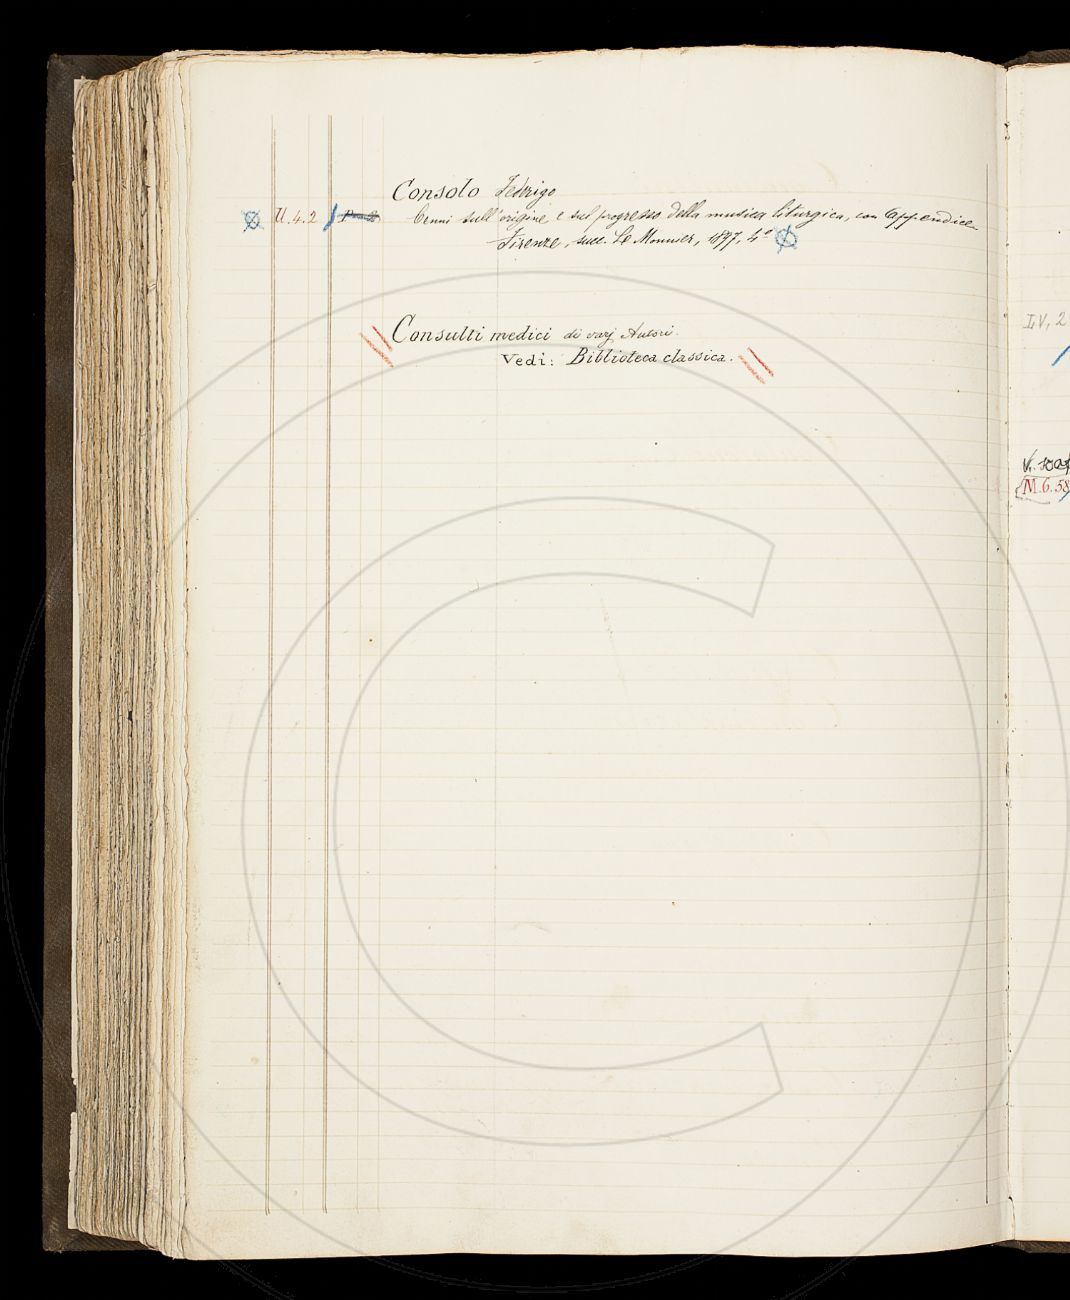 Consolo Federigo
U.4.2
Cenni sull'origine, e sul progresso della musica liturgica, con appendice.
Firenze, succ. Le Monnier, 1897, 4°
Consulti medici di varj Autori.
Vedi: Biblioteca classica.
LV, 2
M.6.58